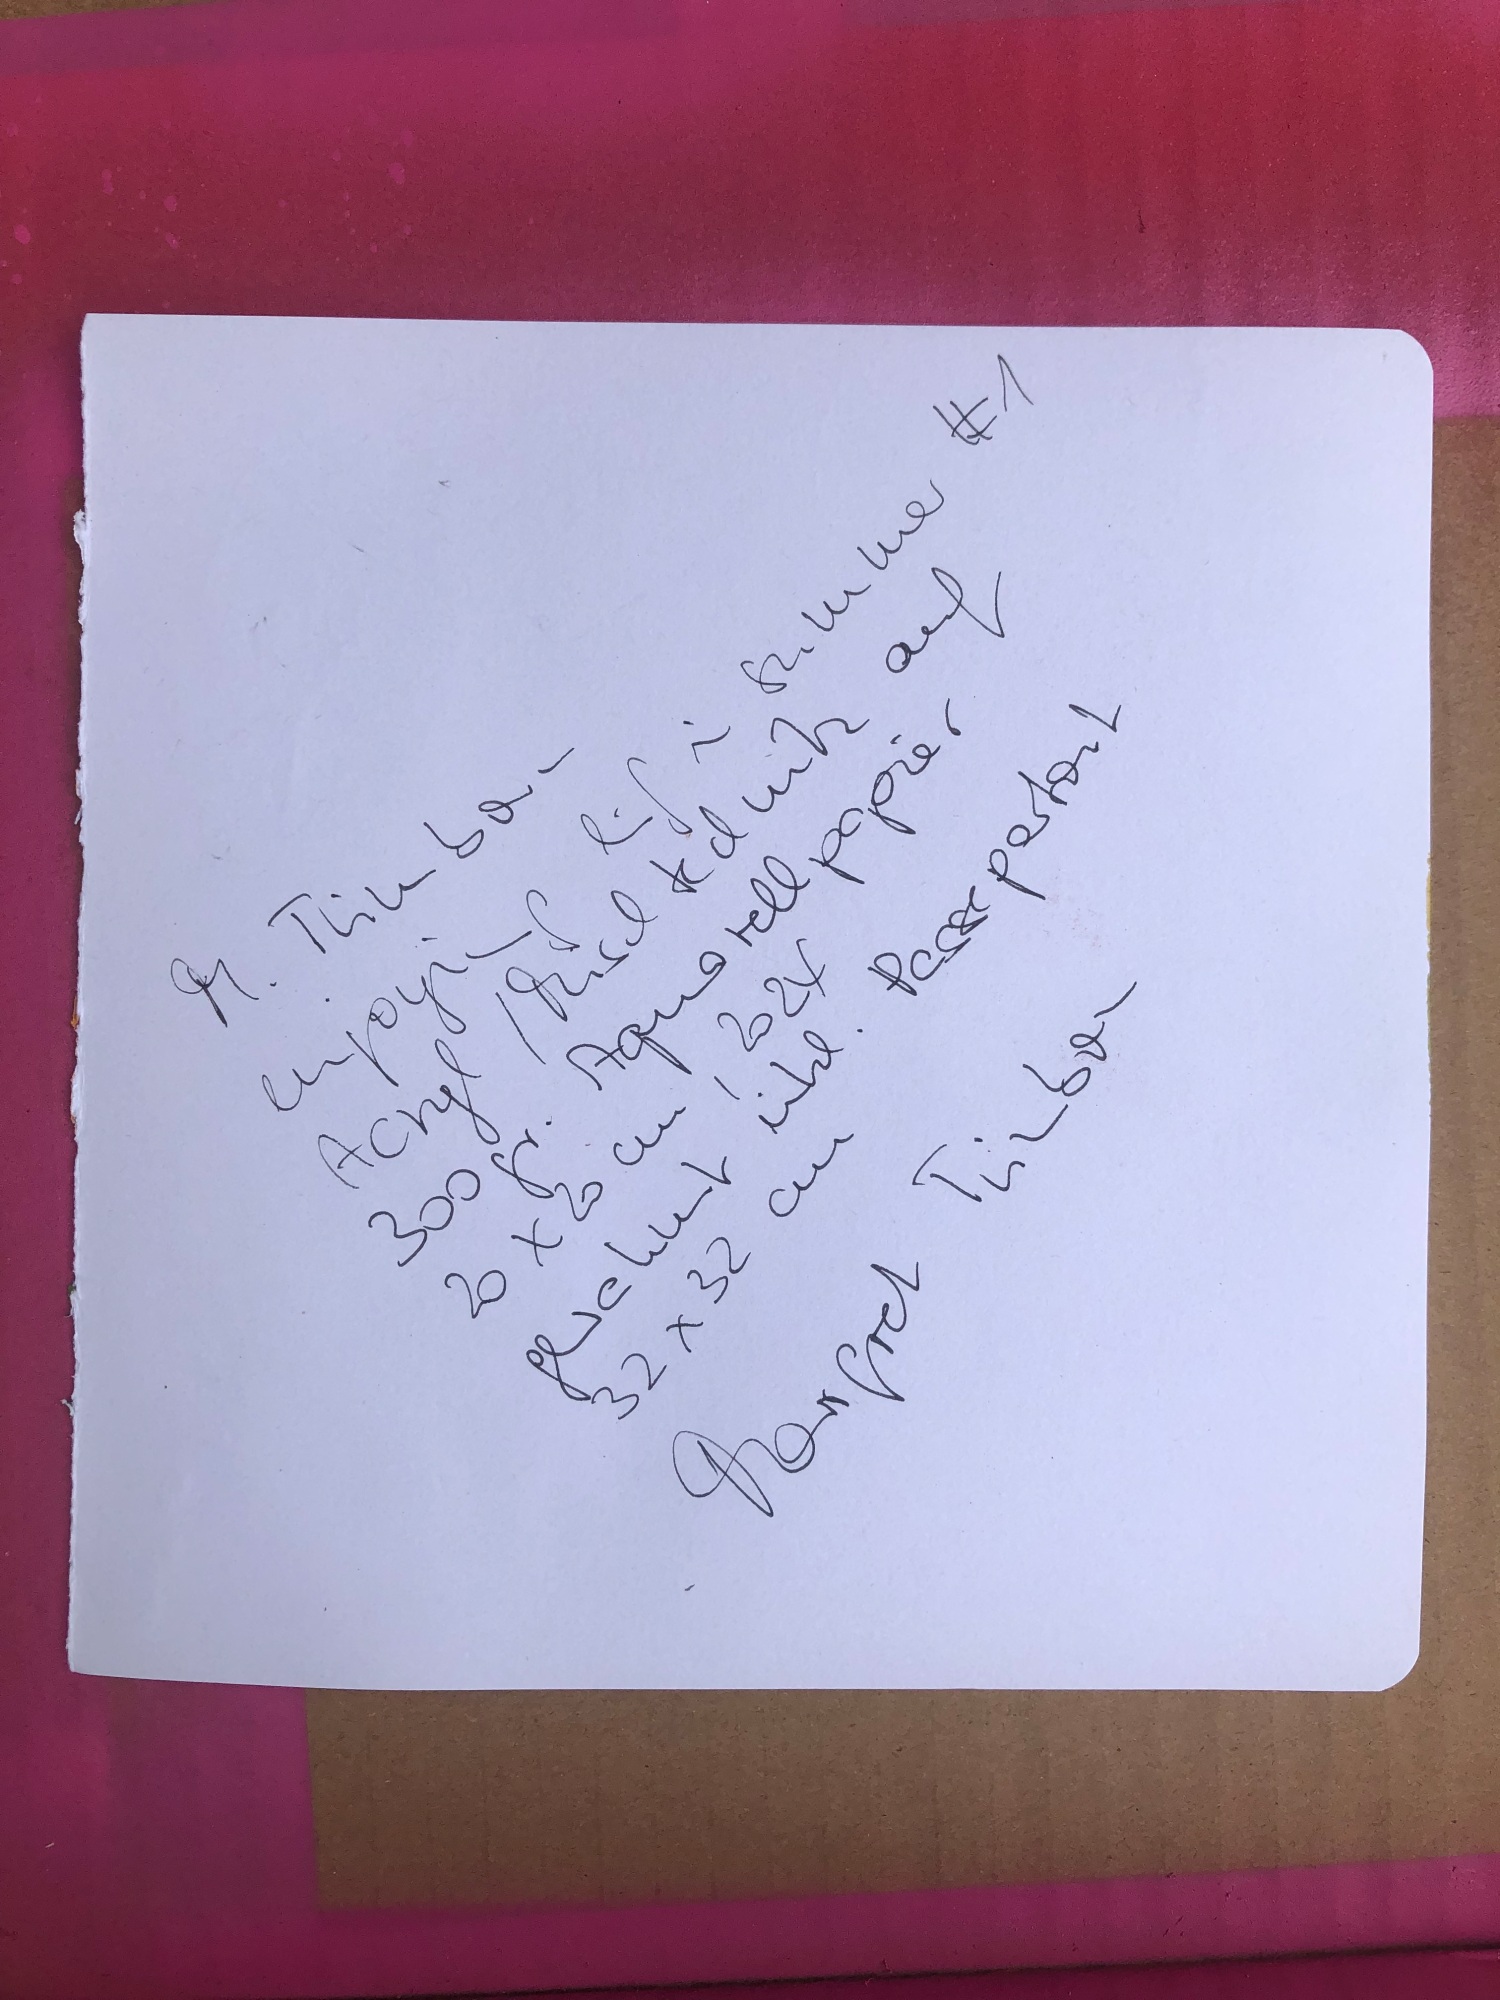 M. Thinbar
enjoying life in summer #1
Acryl / Mischtechnik auf
300 gr. Aquarellpapier
20 x 20 cm, 2024
gerahmt inkl. Passepartout
32 x 32 cm
Manfred